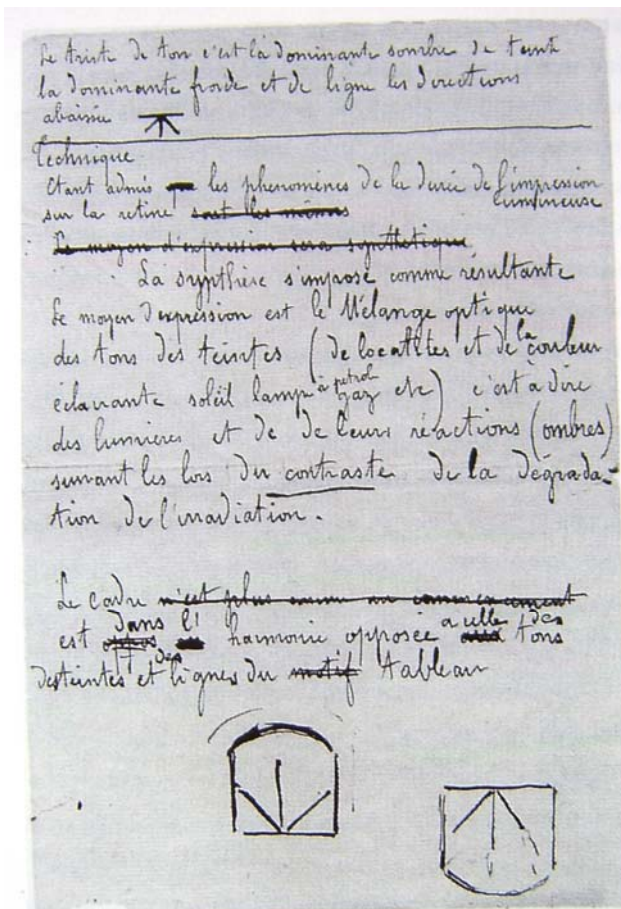 Le triste de ton c'est la dominante sombre de teinte
la dominante froide et de ligne les directions
abaissées
Technique
Etant admis les phénomènes de la durée de l'impression
lumineuse
sur la rétine sont les mêmes
Le moyen d'expression sera synthétique
La synthèse s'impose comme résultante
Le moyen d'expression est le Mélange optique
des tons des teintes (de localités et de la couleur
éclairante soleil lampe à pétrol gaz etc) c'est à dire
des lumières et de de leurs réactions (ombres)
suivant les lois du contraste de la dégrada-
tion de l'irradiation.
Le cadre n'est plus comme au commencement
est dans l' harmonie opposée à celle des tons
des teintes et des lignes du motif tableau